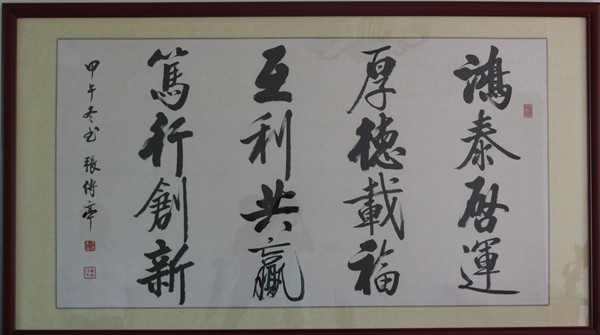 鴻泰啓運
厚德載福
互利共贏
篤行創新
甲午冬書 張傳亭